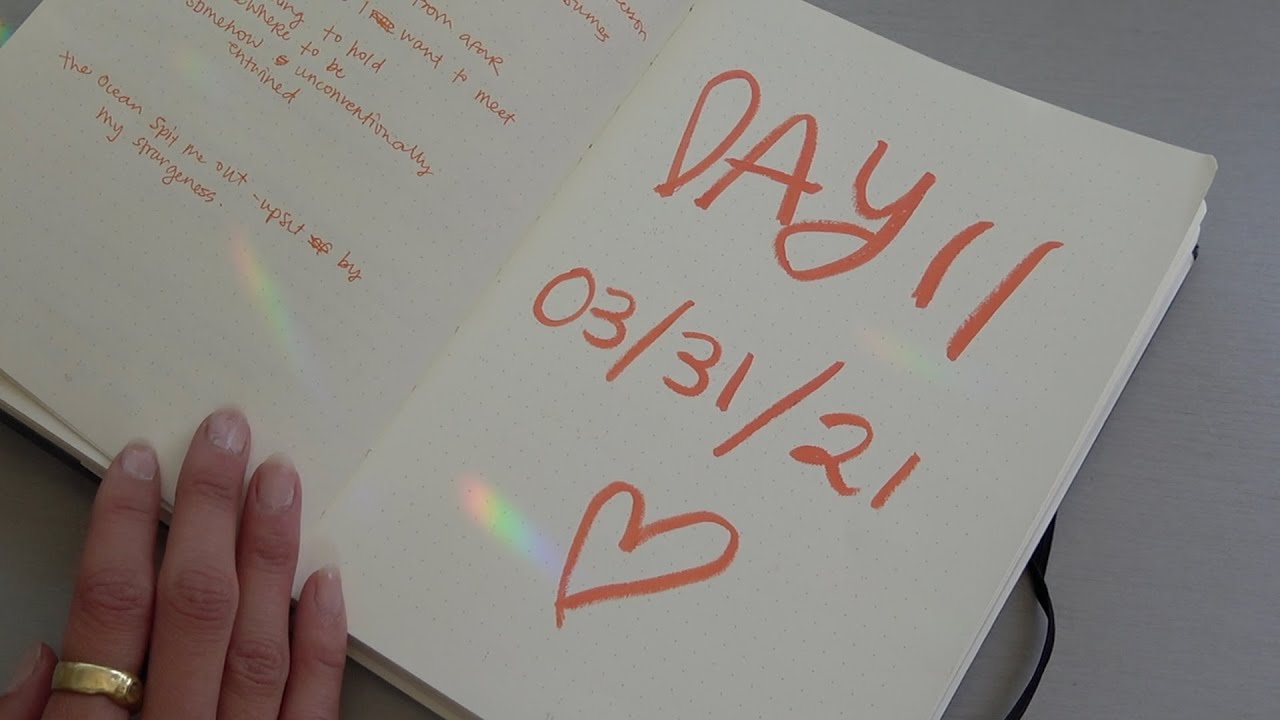 from afar
I want to meet
to hold
to be
somehow & unconventionally
entwined
the ocean spit me out - upset by
my strangeness.
DAY 11
03/31/21